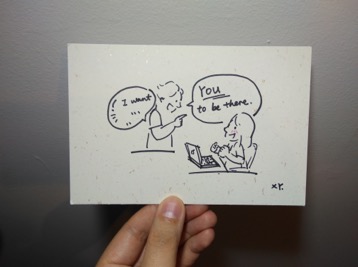 I want
...
You
to be there.
XY.